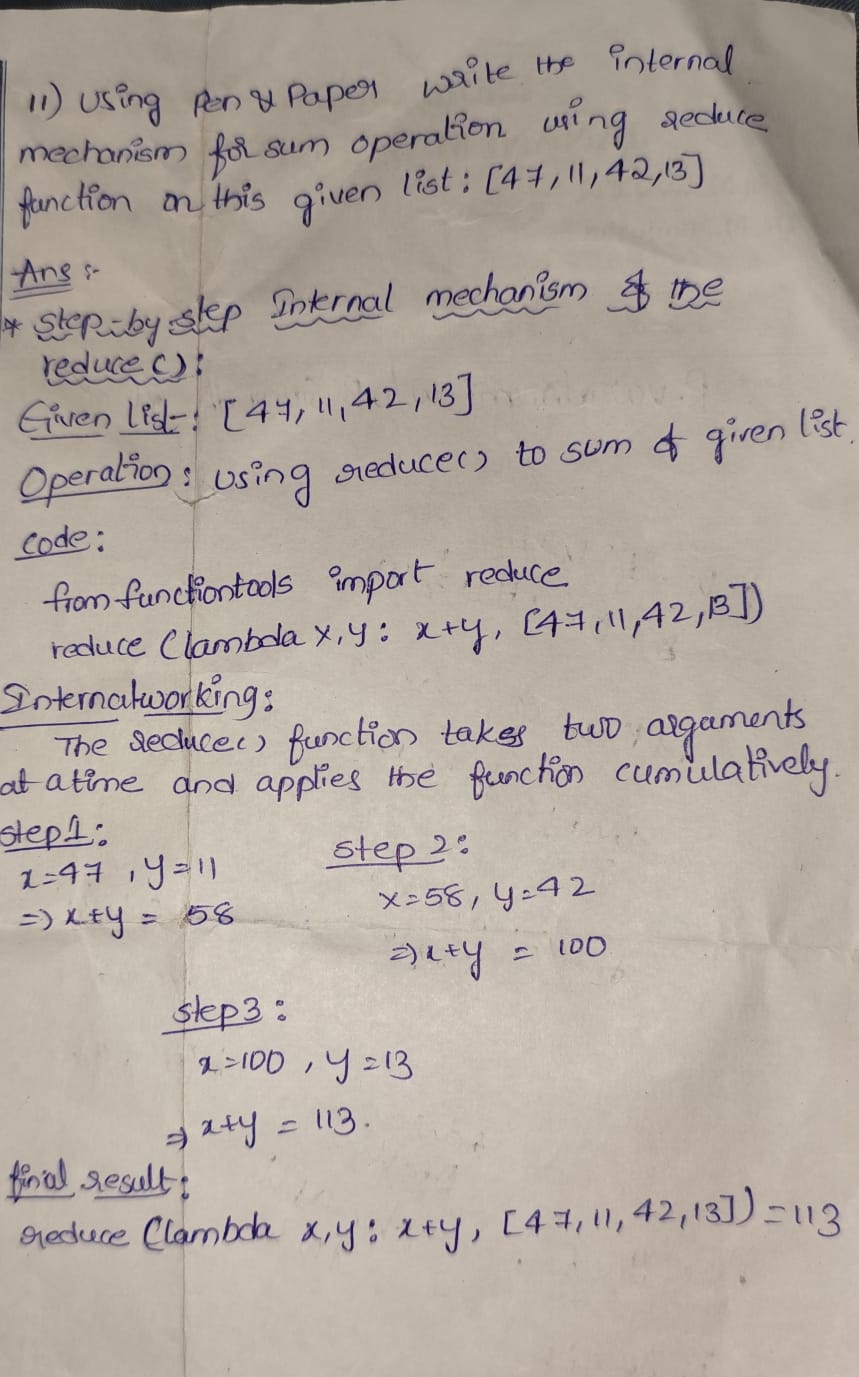 11) Using Pen & Paper write the internal
mechanism for sum operation using reduce
function on this given list : [47, 11, 42, 13]
Ans :-
* Step-by step Internal mechanism of the
reduce():
Given list : [47, 11, 42, 13]
Operation : Using reduce() to sum of given list.
code :
from functiontools import reduce
reduce (lambda x,y : x+y, [47, 11, 42, 13])
Internalworking :
The reduce() function takes two arguments
at a time and applies the function cumulatively.
step1 :
x=47 , y=11
=> x+y = 58
step 2 :
x=58, y=42
=> x+y = 100
step3 :
x=100 , y=13
=> x+y = 113.
final result :
reduce (lambda x,y : x+y, [47, 11, 42, 13]) = 113